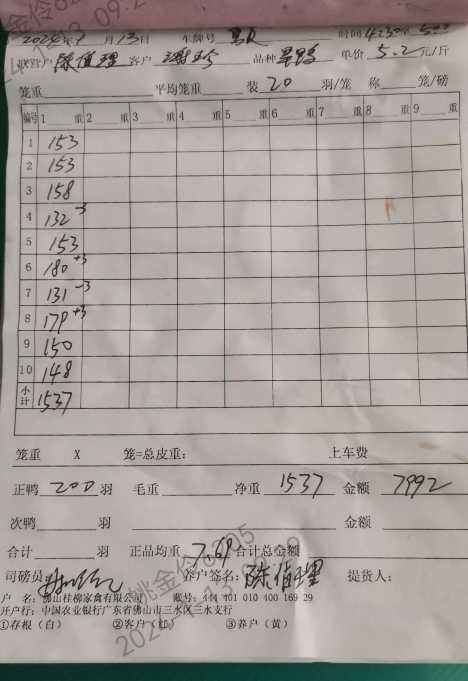 2024年1月13日 车牌号 时间
陈值理 客户 品种 单价 5.2 元/斤
笼重 平均笼重 装 20 羽/笼 称 笼/磅
编号 1 重 2 重 3 重 4 重 5 重 6 重 7 重 8 重 9 重
1 153
2 153
3 158
4 132 -3
5 153
6 180 +3
7 131 -3
8 179 +3
9 150
10 148
小计 1537
笼重 X 笼=总皮重: 上车费
正鸭 200 羽 毛重 净重 1537 金额 7992
次鸭 羽 金额
合计 羽 正品均重 7.69 合计总金额
司磅员 养户签名: 陈值理 提货人:
户 名: 佛山桂柳家禽有限公司 账号: 444 401 010 400 169 29
开户行: 中国农业银行广东省佛山市三水区三水支行
①存根（白） ②客户（红） ③养户（黄）